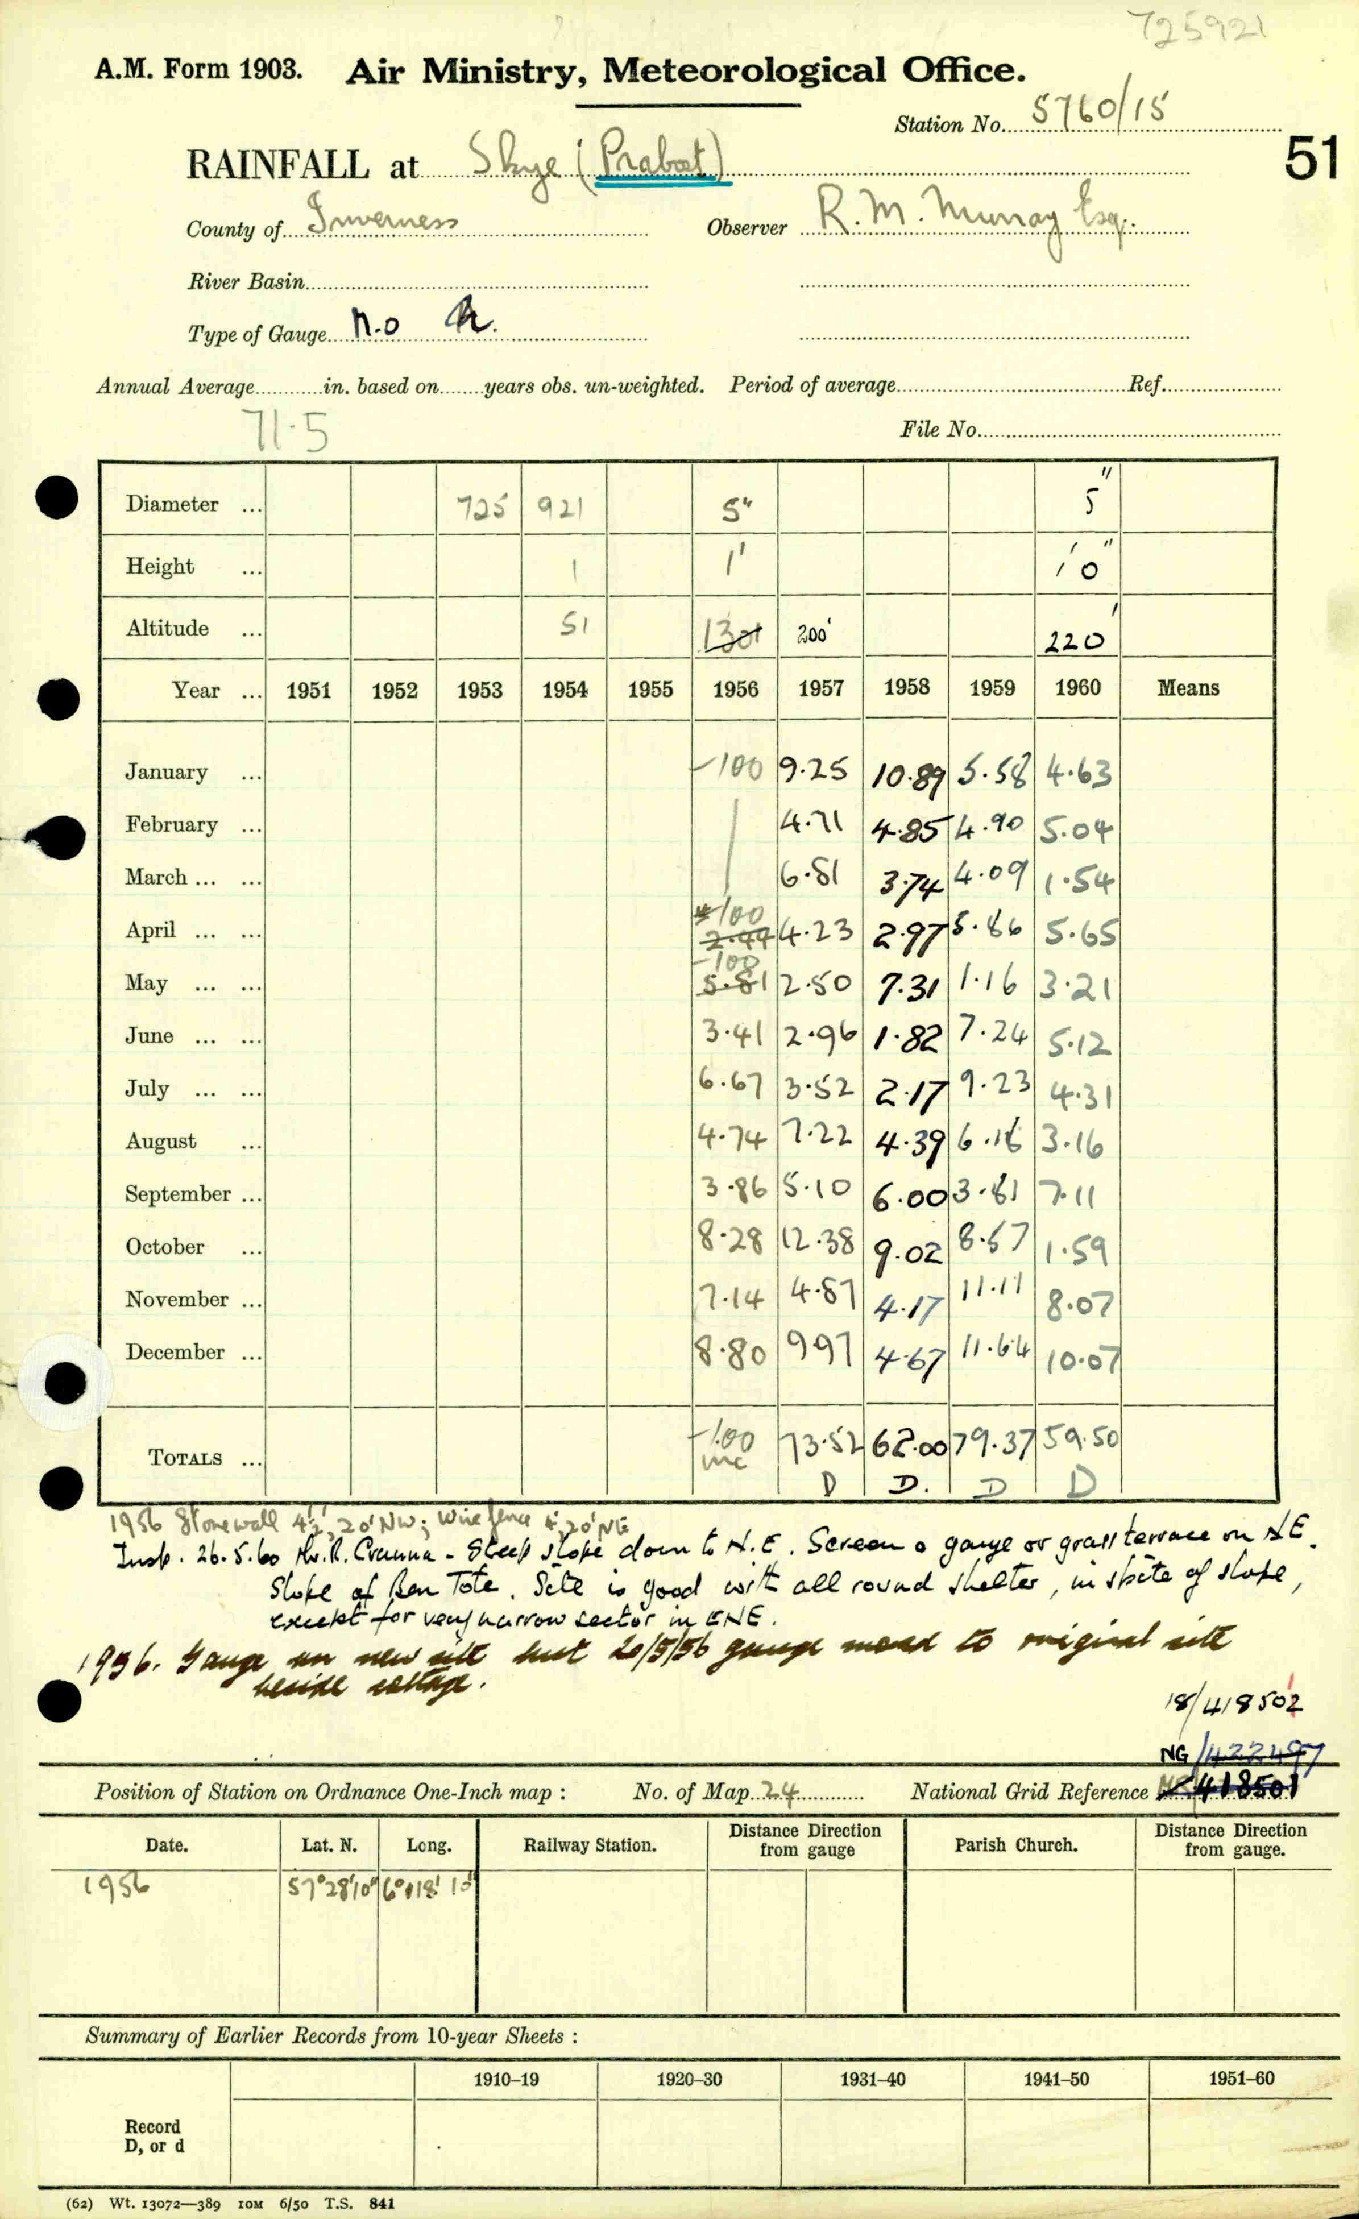 725921
A.M. Form 1903. Air Ministry, Meteorological Office.
Station No. 5760/15
51
RAINFALL at Skye (Prabost)
County of Inverness Observer R. M. Murray Esq.
River Basin
Type of Gauge M.O
Annual Average in. based on years obs. un-weighted. Period of average Ref.
71.5
File No.
Diameter ... 725 921 5" 5"
Height ... 1 1' 1' 0"
Altitude ... 51 130' 200' 220'
Year ... 1951 1952 1953 1954 1955 1956 1957 1958 1959 1960 Means
January ... -100 9.25 10.89 5.58 4.63
February ... 4.71 4.85 4.90 5.04
March ... ... 6.81 3.74 4.09 1.54
-100
April ... ... 2.44 4.23 2.97 5.86 5.65
-100
May ... ... 5.81 2.50 7.31 1.16 3.21
June ... ... 3.41 2.96 1.82 7.24 5.12
July ... ... 6.67 3.52 2.17 9.23 4.31
August ... 4.74 7.22 4.39 6.18 3.16
September ... 3.86 5.10 6.00 3.81 7.11
October ... 8.28 12.38 9.02 8.57 1.59
November ... 7.14 4.87 4.17 11.11 8.07
December ... 8.80 9.97 4.67 11.64 10.07
TOTALS ... -1.00 inc 73.52 62.00 79.37 59.50
D D. D D
1956 Stonewall 4½', 20' NW; Wire fence 4', 20' NE
Insp. 26.5.60 Mr. R. Cranna - Steep slope down to N.E. Screen & gauge on grass terrace on NE.
Slope of Ben Tote. Site is good with all round shelter, in spite of slope,
except for very narrow sector in ENE.
1956. Gauge on new site but 20/5/56 gauge moved to original site
beside cottage.
18/418502
NG/422497
Position of Station on Ordnance One-Inch map : No. of Map 24 National Grid Reference 418501
Date. Lat. N. Long. Railway Station. Distance Direction from gauge Parish Church. Distance Direction from gauge.
1956 57°28'10" 6°18'10"
Summary of Earlier Records from 10-year Sheets :
1910–19 1920–30 1931–40 1941–50 1951–60
Record
D, or d
(62) Wt. 13072—389 10M 6/50 T.S. 841